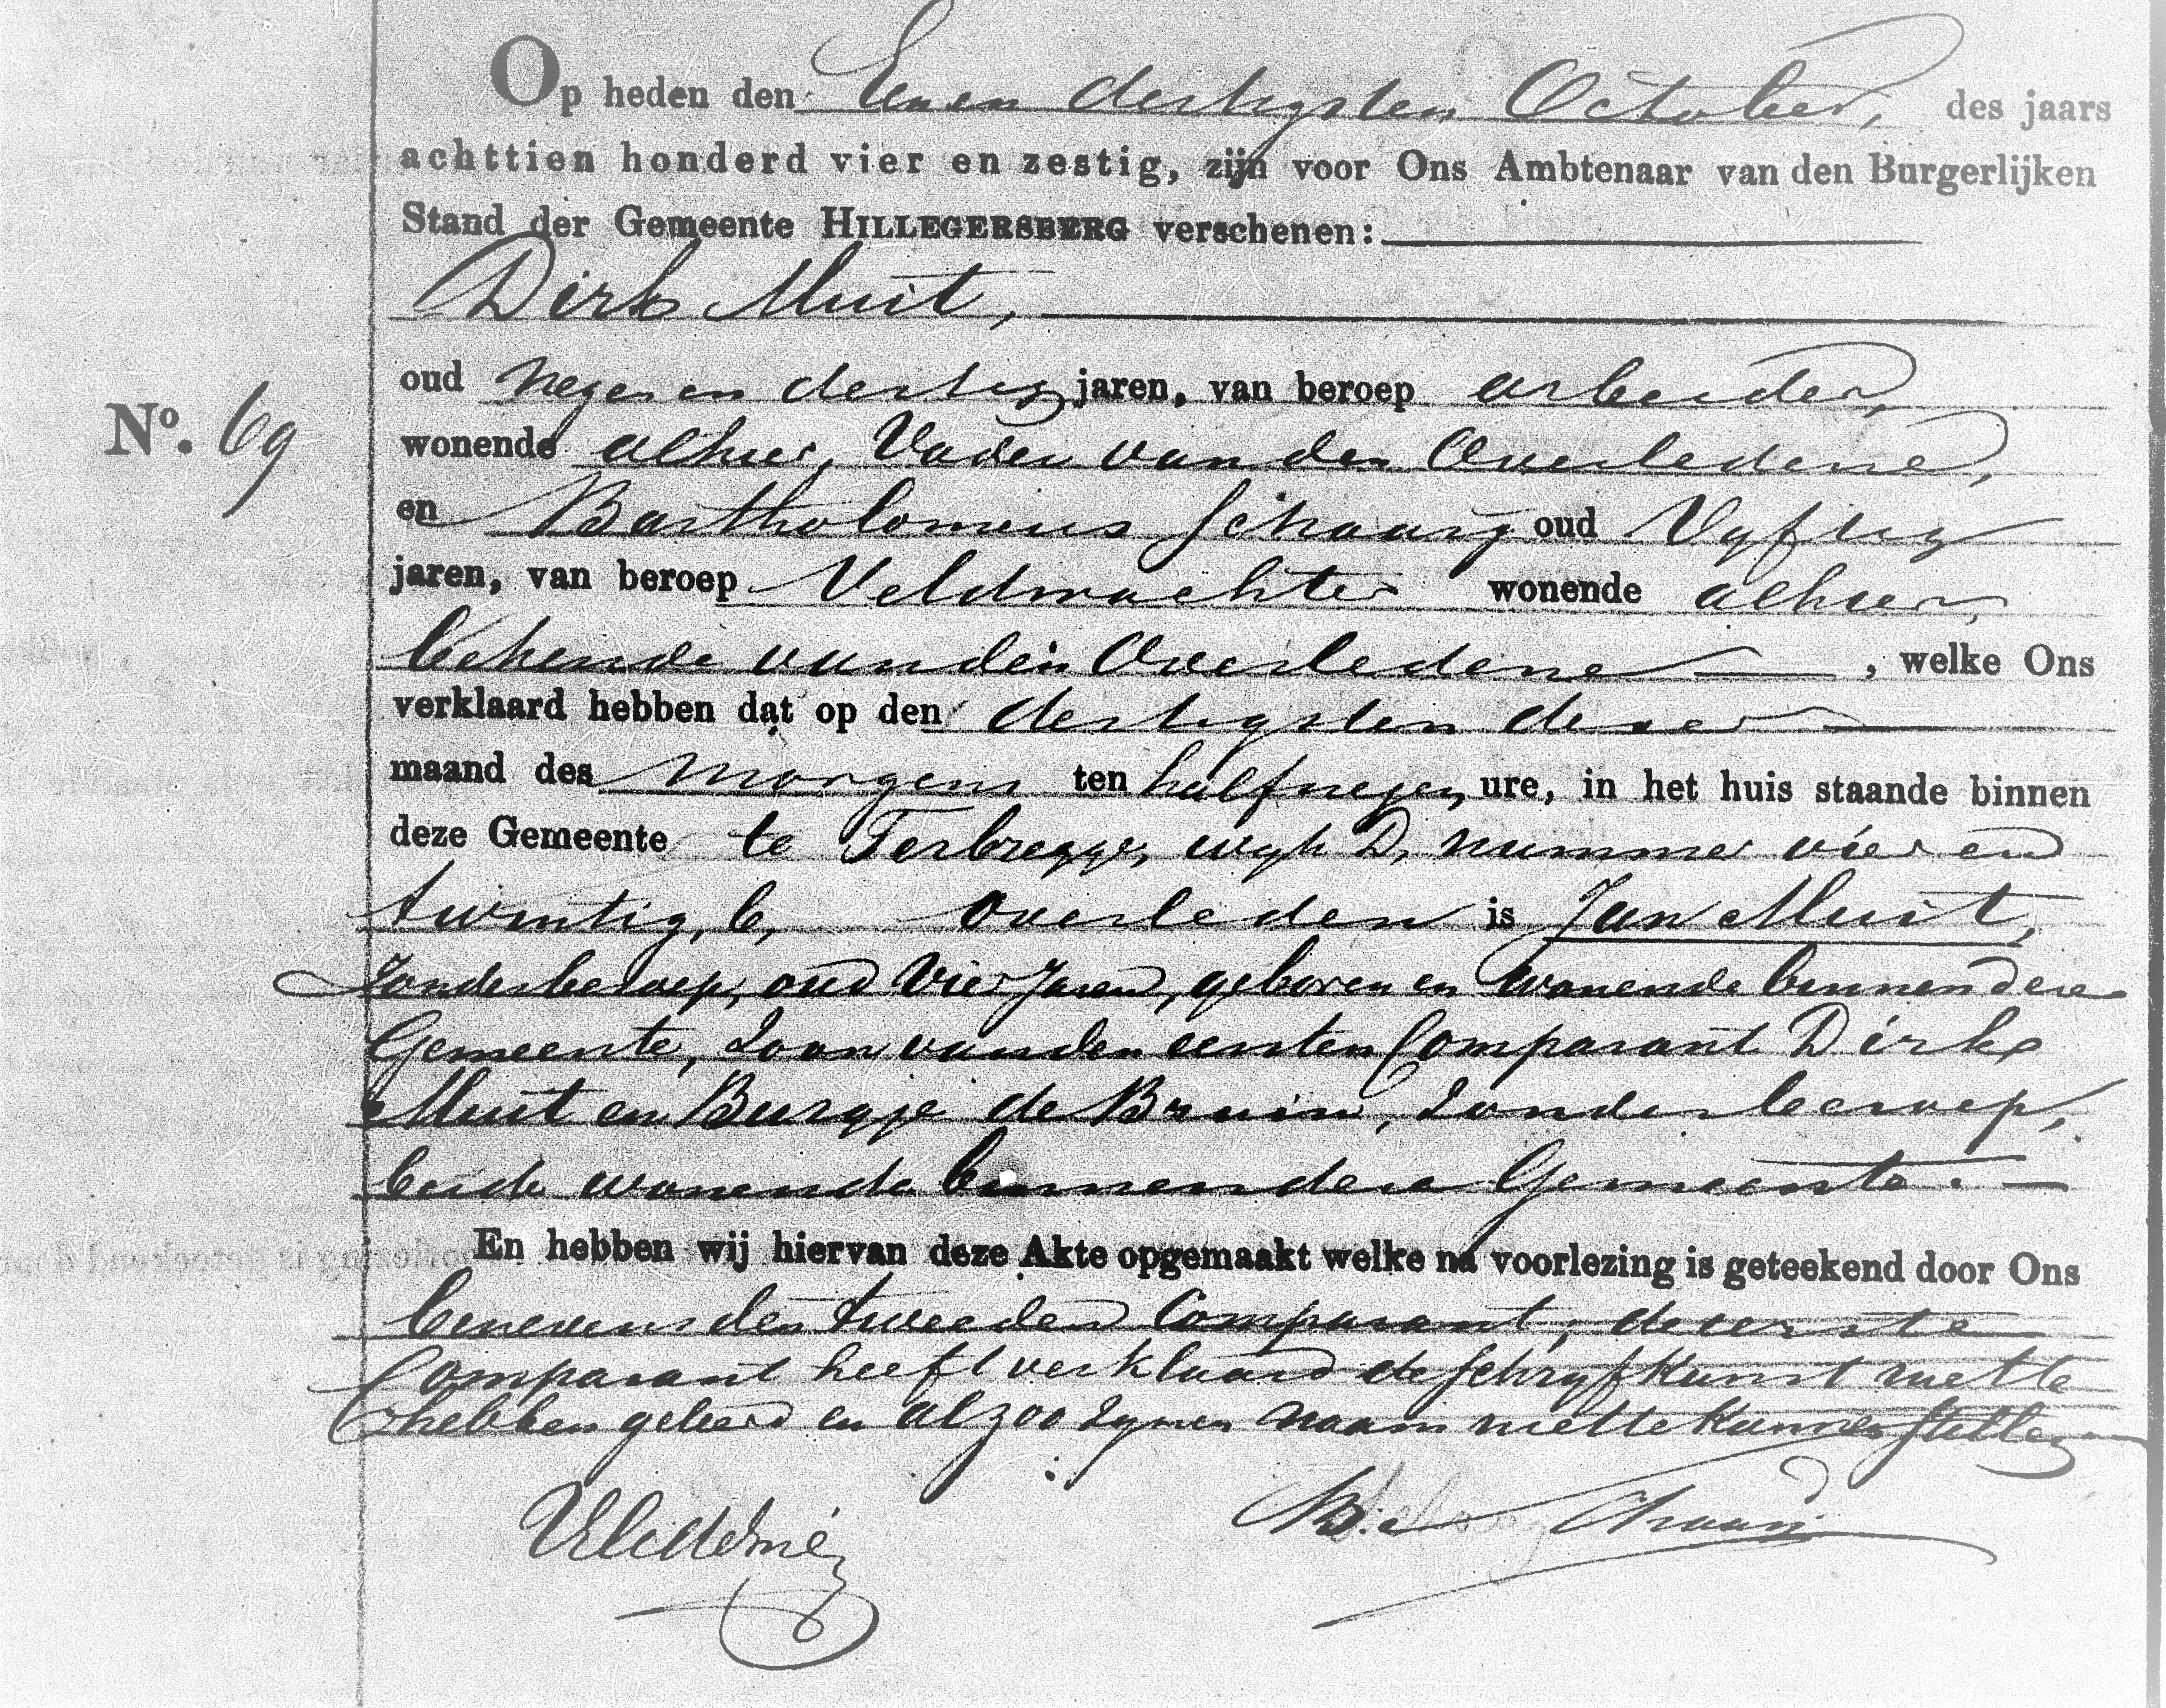 Op heden den Een en dertigsten October, des jaars
achttien honderd vier en zestig, zijn voor Ons Ambtenaar van den Burgerlijken
Stand der Gemeente HILLEGERSBERG verschenen:
Dirk Muit,
oud Negen en dertig jaren, van beroep arbeider,
No. 69
wonende alhier, Vader van den Overledene,
en Bartholomeus Schaaij oud Vyftig
jaren, van beroep Veldwachter wonende alhier,
bekende van den Overledene, welke Ons
verklaard hebben dat op den dertigsten dezer
maand des Morgens ten half negen ure, in het huis staande binnen
deze Gemeente te Terbregge, wyk D, nummer vier en
twintig, b, overleden is Jan Muit,
Zonder beroep, oud Vier Jaren, geboren en wonende binnen deze
Gemeente, Zoon van den eersten Comparant Dirk
Muit en Burgje de Bruin, Zonder beroep,
beide wonende binnen deze Gemeente.
En hebben wij hiervan deze Akte opgemaakt welke na voorlezing is geteekend door Ons
benevens den tweeden Comparant, de eerste
Comparant heeft verklaard de Schryfkunst niet te
hebben geleerd en alzoo zynen naam niet te kunnen stellen